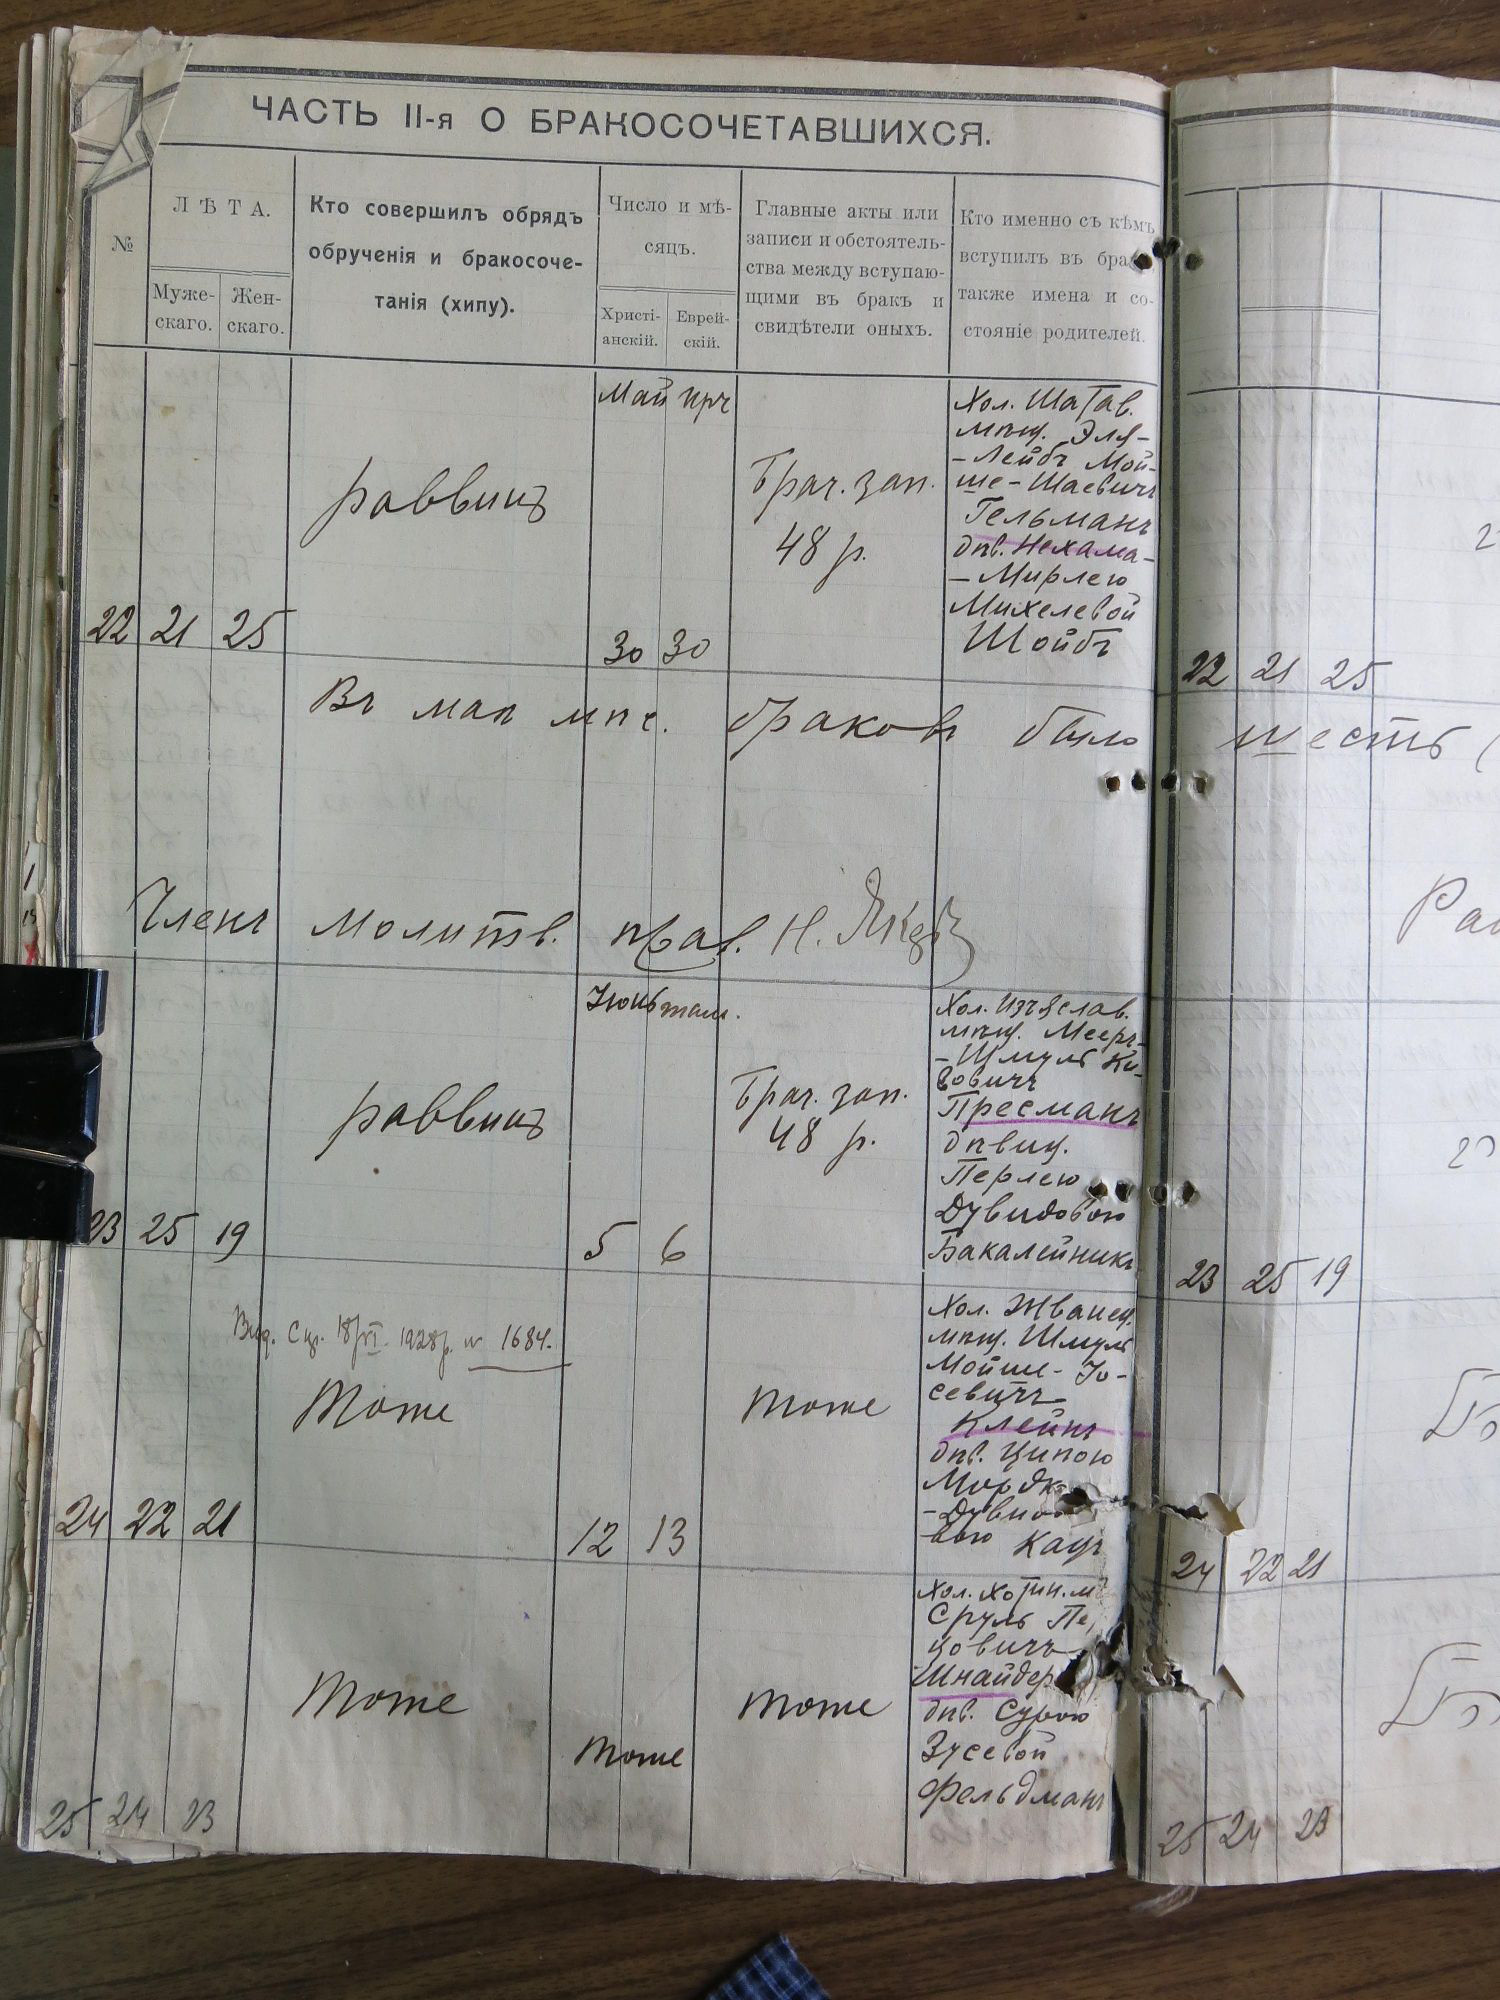 ЧАСТЬ II-я О БРАКОСОЧЕТАВШИХСЯ.
№
ЛѢТА.
Муже-
скаго.
Жен-
скаго.
Кто совершилъ обрядъ
обрученія и бракосоче-
танія (хипу).
Число и мѣ-
сяцъ.
Христі-
анскій.
Еврей-
скій.
Главные акты или
записи и обстоятель-
ства между вступаю-
щими въ бракъ и
свидѣтели оныхъ.
Кто именно съ кѣмъ
вступилъ въ бра
также имена и со-
стояніе родителей.
22 21 25
раввинъ
Май Іяр
30 30
Брач. зап.
48 р.
Хол. Шатав.
мѣщ. Эля-
-Лейбъ Мой-
ше-Шаевичъ
Гельманъ
дѣв. Нехама-
-Мирлею
Михелевой
Шойбъ
22 21 25
Въ маѣ мѣс. браковъ было шесть (
Членъ молитв. прав. Н.
23 25 19
раввинъ
Іюнь там.
5 6
Брач. зап.
48 р.
Хол. Изяслав.
мѣщ. Мееръ-
-Шмуль Ки-
вовичъ
Пресманъ
дѣвиц.
Перлею
Дувидовою
Бакалейникъ
23 25 19
Вид. 18/VI 1928р. № 1684.
24 22 21
тоже
12 13
тоже
Хол. Жванец.
мѣщ. Шмуль
Мойше-Іо-
севичъ
Клейнъ
дѣв. Ципою
Мордк
-Дувидо
-вою Кацъ
24 22 21
25 24 23
тоже
тоже
тоже
Хол. Хотин. м
Сруль Пе
цовичъ
Шнайдер
дѣв. Сурою
Зусевой
Фельдманъ
25 24 23